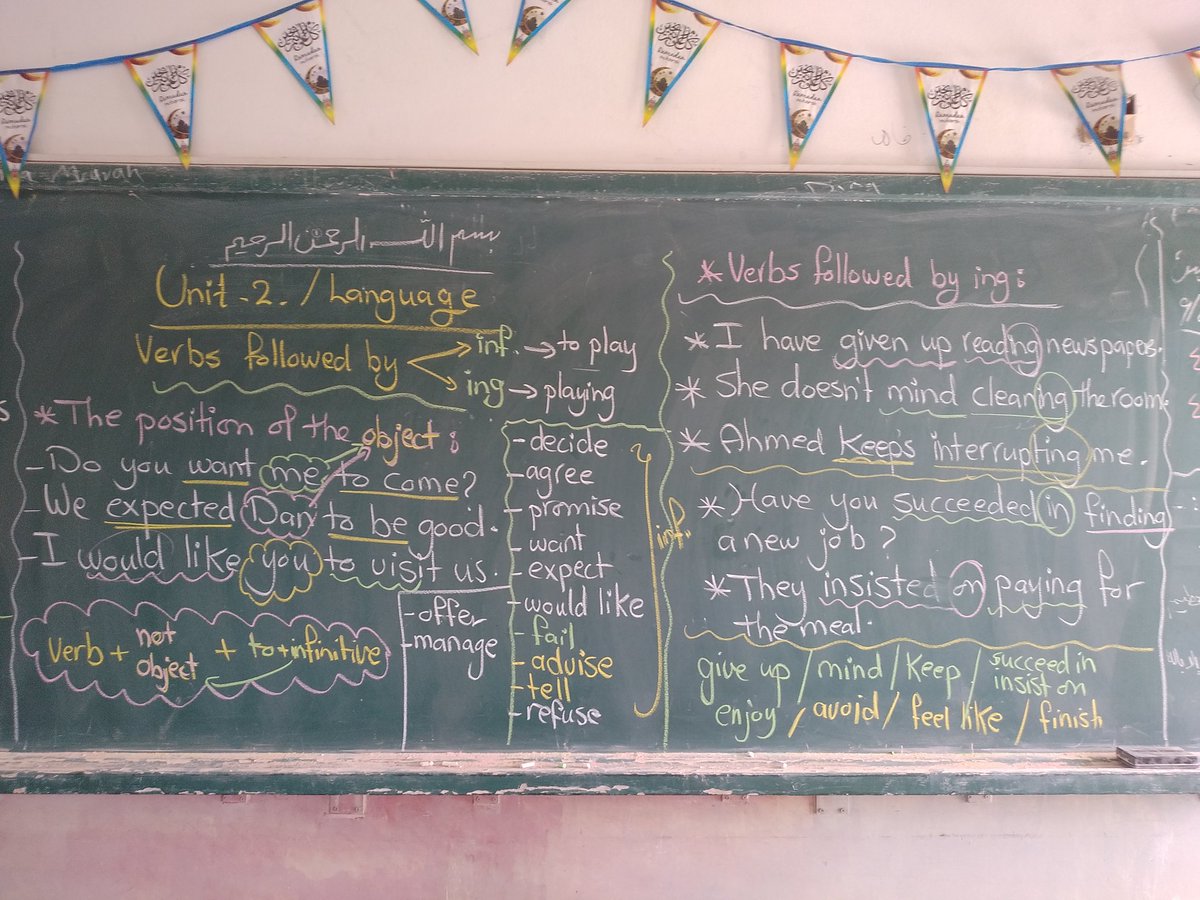 كل عام وأنتم بخير
Ramadan
Mubarah
Dina
بسم الله الرحمن الرحيم
Unit.2./Language
Verbs followed by
inf. → to play
ing → playing
*The position of the object:
-Do you want me to come?
-We expected Dan to be good.
-I would like you to visit us.
verb + not object + to+infinitive
-offer
-manage
-decide
-agree
-promise
-want
-expect
-would like
-fail
-advise
-tell
-refuse
inf.
*Verbs followed by ing:
*I have given up reading newspapers.
*She doesn't mind cleaning the room.
*Ahmed Keeps interrupting me.
*Have you succeeded in finding
a new job?
*They insisted on paying for
the meal.
give up / mind / Keep / succeed in
insist on
enjoy / avoid / feel like / finish